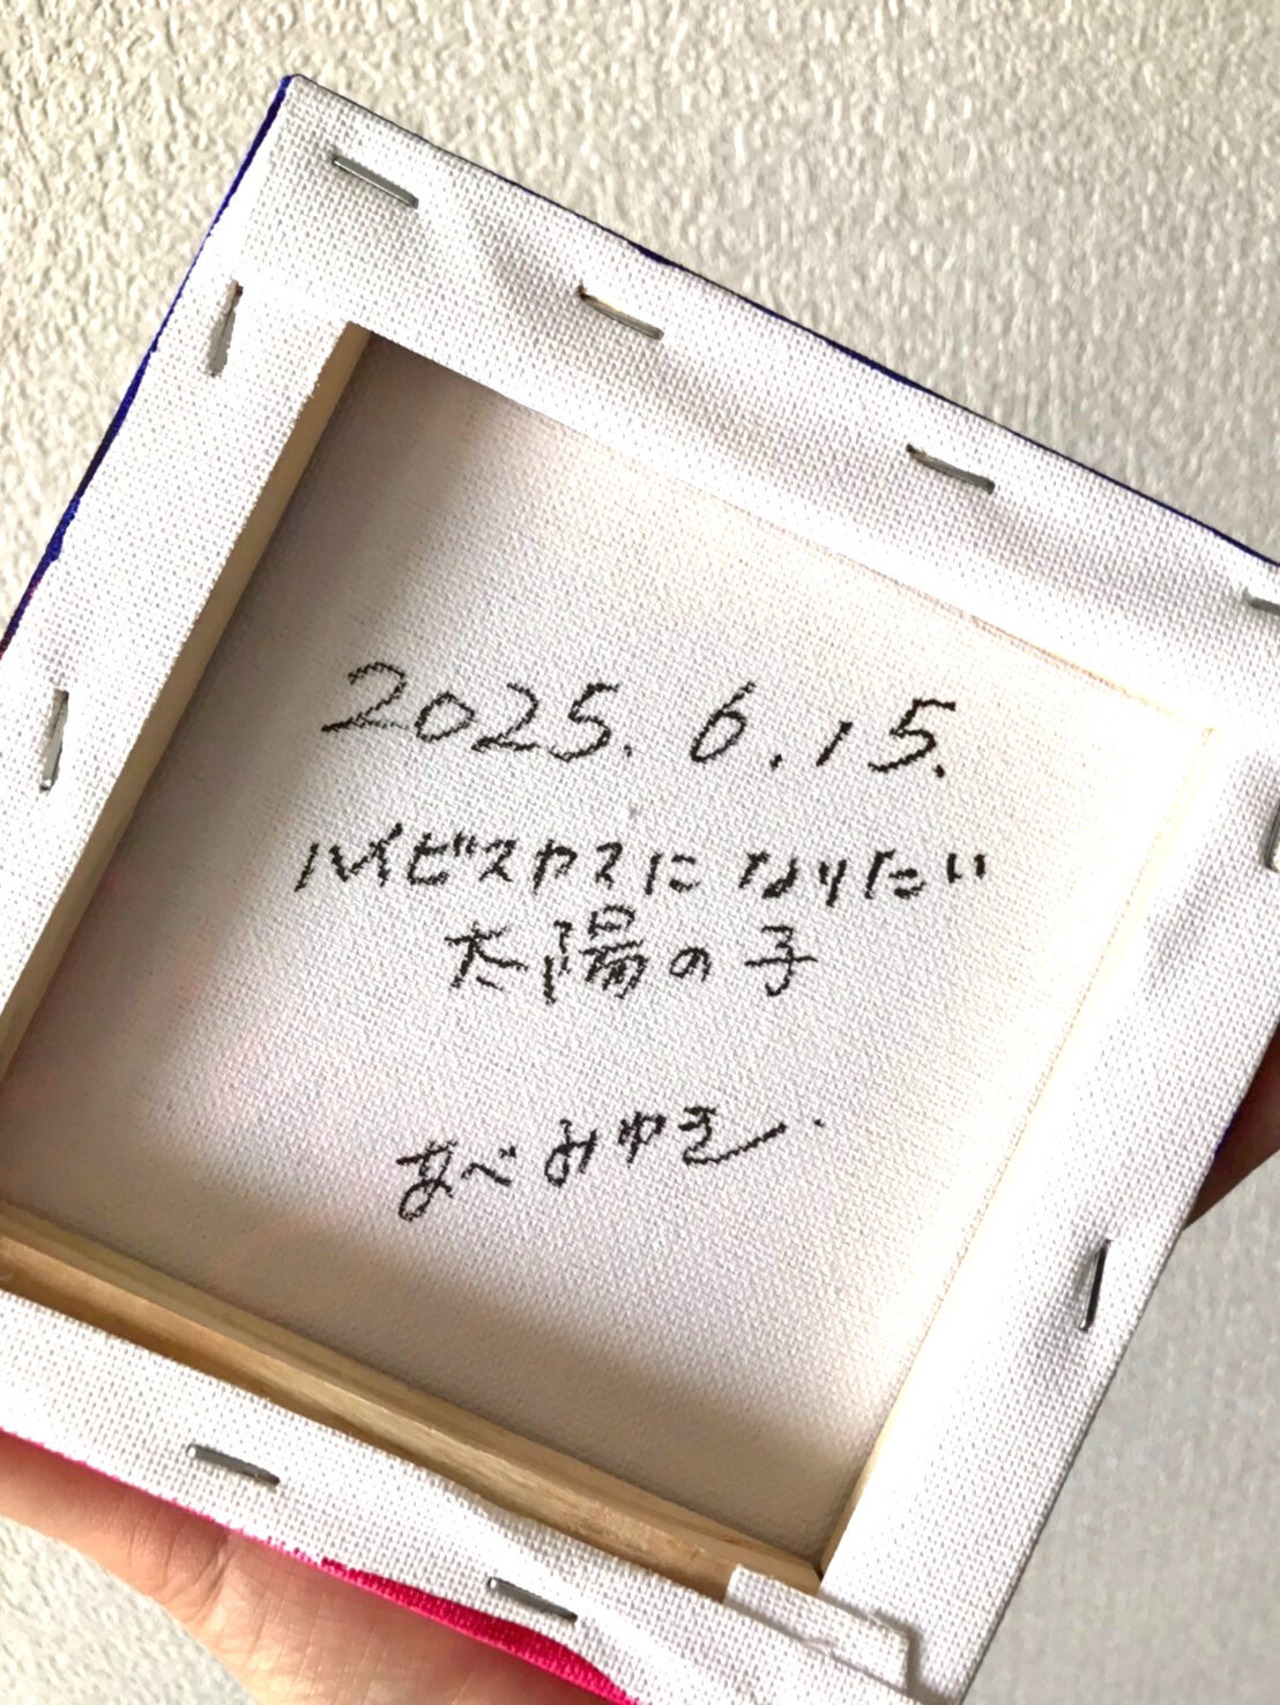 2025. 6. 15.
ハイビスカスになりたい
太陽の子
あべみゆき.